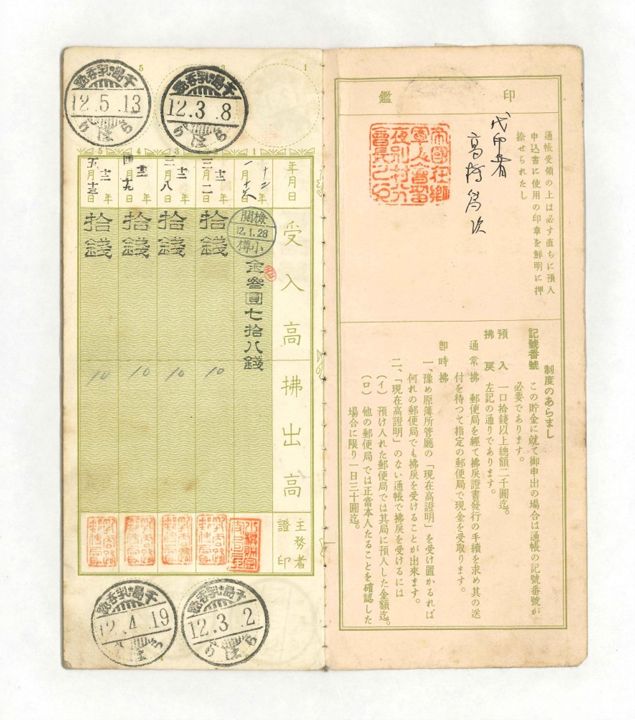 印鑑
通帳受領の上は必す直ちに預入
申込書に使用の印章を鮮明に押
捺せられたし
制度のあらまし
記號番號 この貯金に就て御申出の場合は通帳の記號番號が
必要であります。
預入 一口拾錢以上總額二千圓迄。
拂戻 左記の通りであります。
通常拂 郵便局を經て拂戻證書發行の手續を求め其の送
付を待つて指定の郵便局で現金を受取ります。
即時拂
一、豫め原簿所管廳の「現在高證明」を受け置かるれば
何れの郵便局でも拂戻を受けることが出來ます。
二、「現在高證明」のない通帳で拂戻を受けるには
(イ) 預け入れた郵便局では其局に預入した金額迄。
(ロ) 他の郵便局では正當本人たることを確認した
場合に限り一日三十圓迄。
1
5
年月日
受入高
拂出高
主務者證印
年
月
日
檢閱
12.1.28
小樽
金參圓七拾八錢
年
三月二日
拾錢
10
年
三月八日
拾錢
10
年
四月十九日
拾錢
10
年
五月十三日
拾錢
10
12.5.13
12.3.8
12.4.19
12.3.2